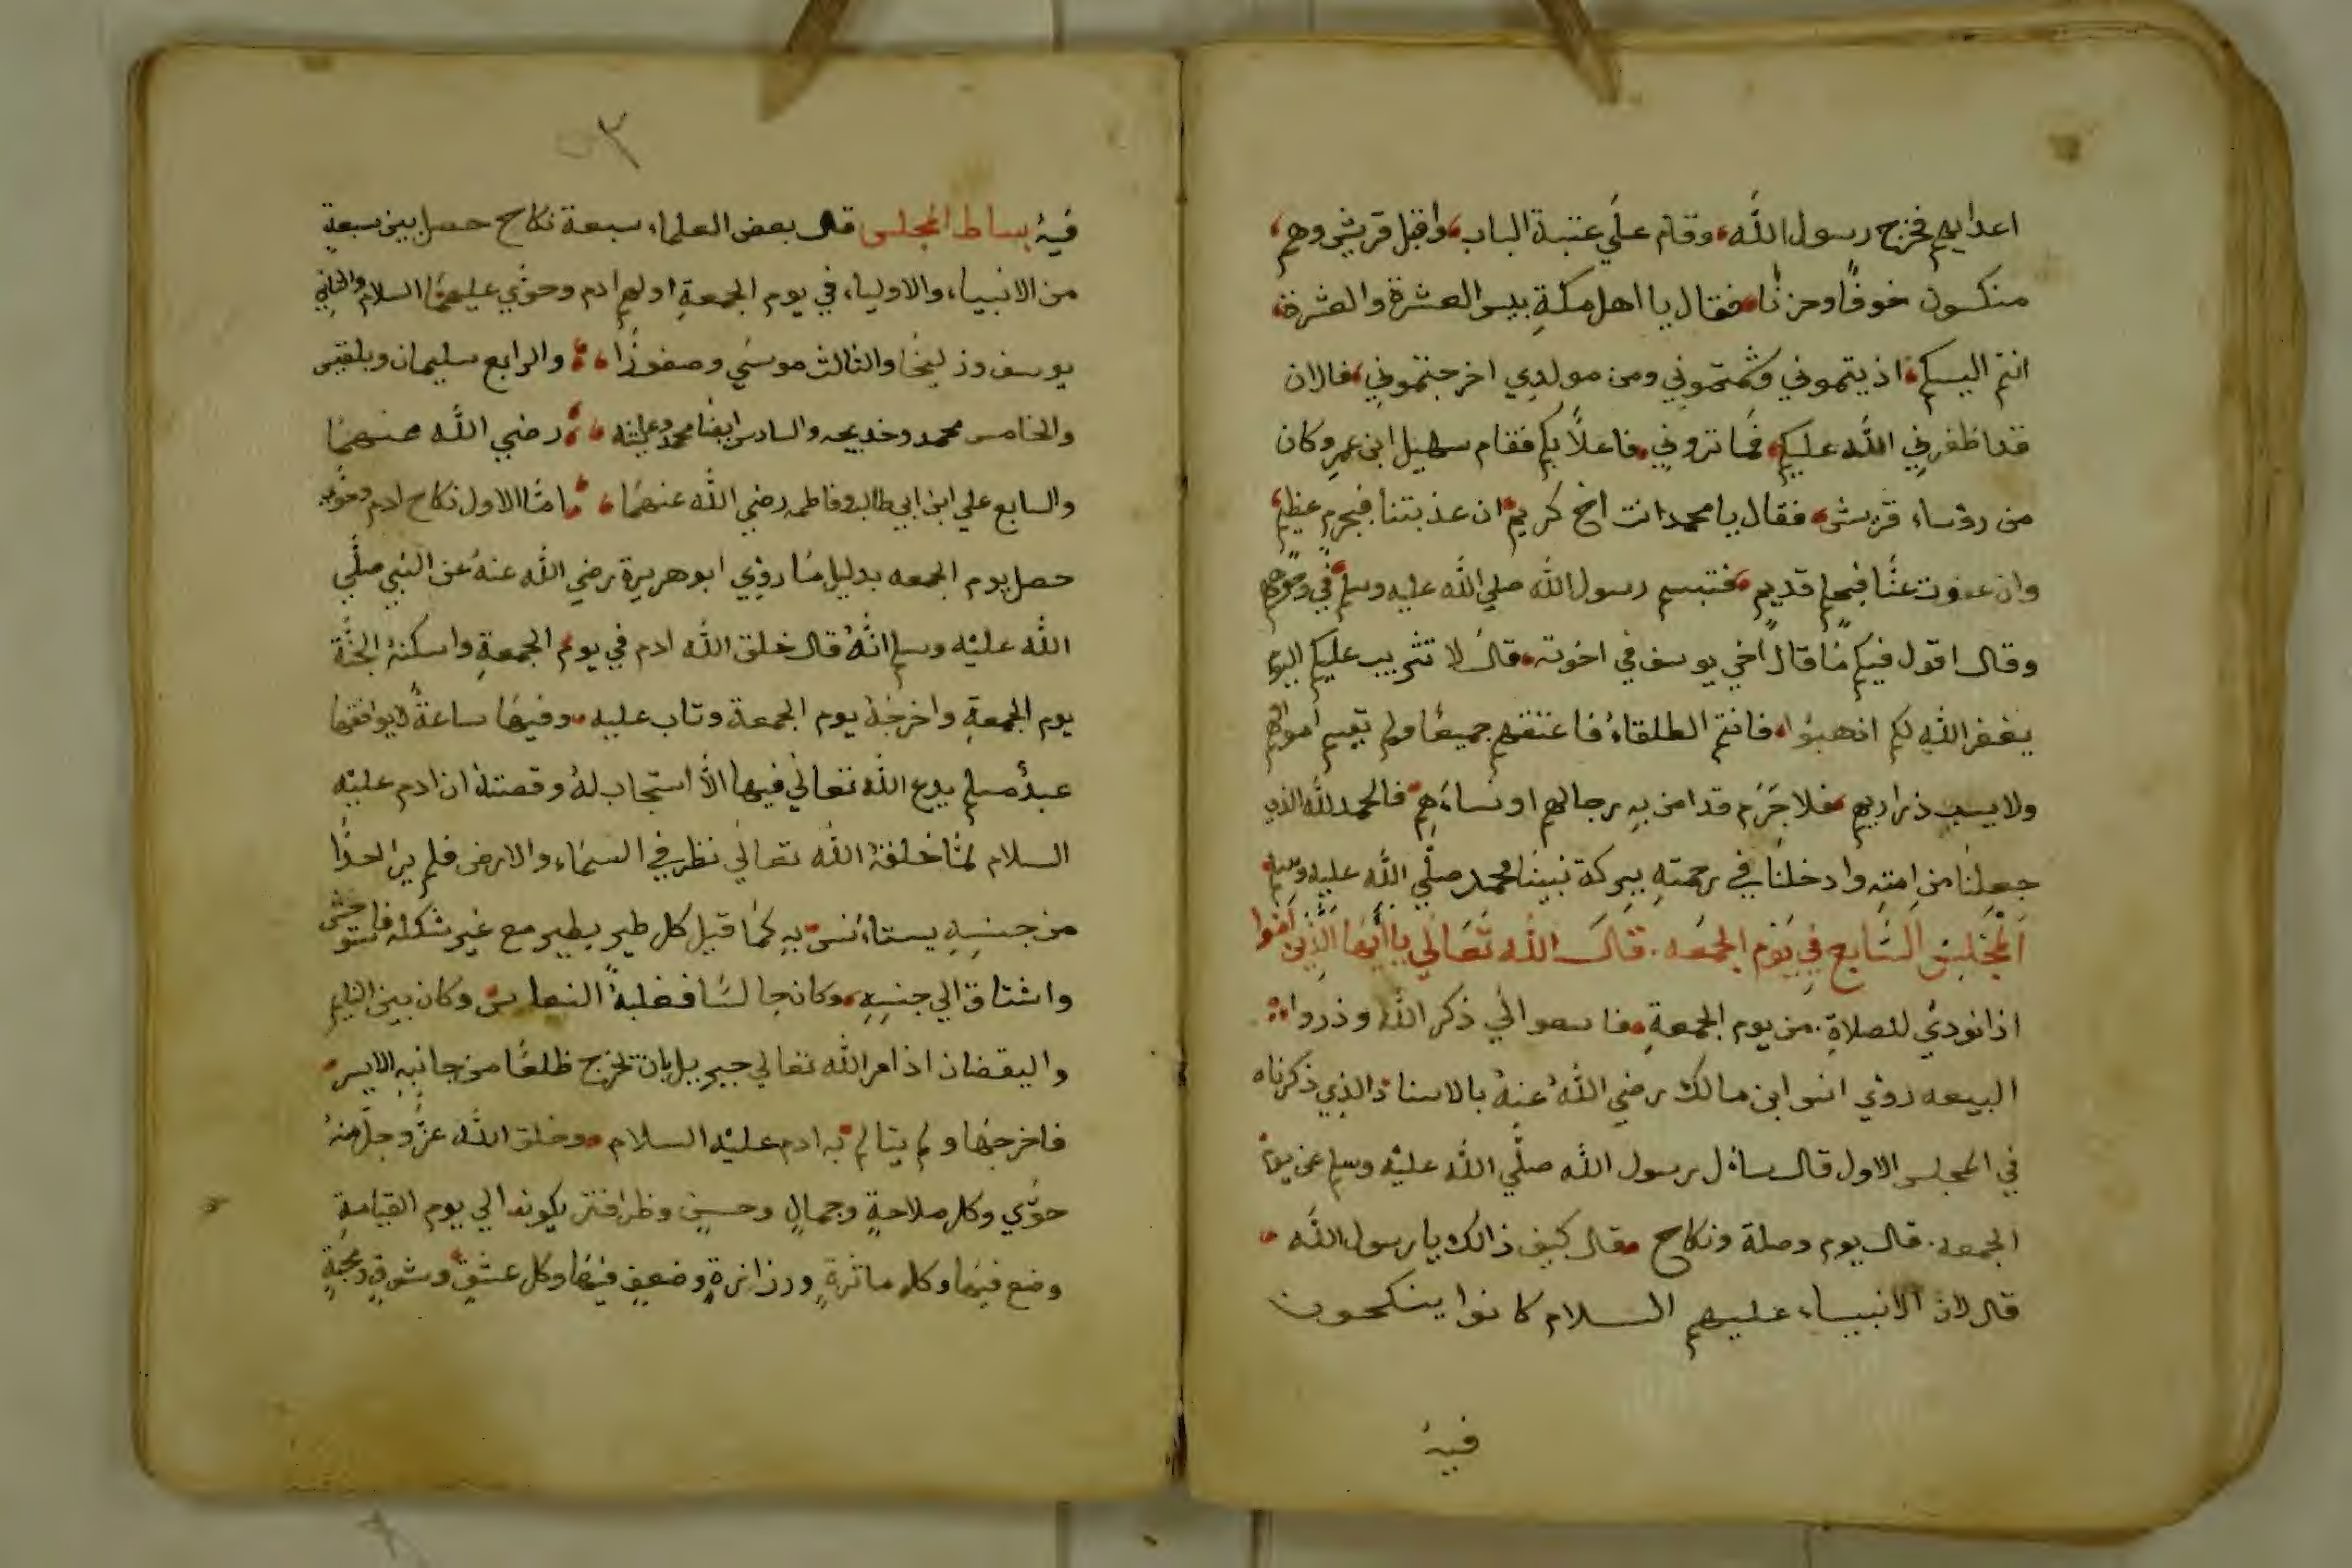 اعدايهم فخرج رسول الله وقام علي عتبة الباب واقبل قريش وهم
منكسون خوفًا وحزنًا فقال يا اهل مكة بيس العشرة والعشرة
انتم اليسكم اذيتموني وشتمتموني ومن مولدي اخرجتموني فالان
قد اظفرني الله عليكم فما تروني فاعلاً بكم فقام سهيل ابن عمر وكان
من روساء قريش فقال يا محمد انت اخ كريم ان عذبتنا فبجرم عظيم
وان عفوت عنا فبحلم قديم فتبسم رسول الله صلي الله عليه وسلم في وجوههم
وقال اقول فيكم ما قال اخي يوسف في اخوته قال لا تثريب عليكم اليوم
يغفر الله لكم اذهبوا فانتم الطلقاء فاعتقهم جميعًا ولم يقسم اموالهم
ولا يسب ذراريهم فلا جرم قد امن به رجالهم او نساءهم فالحمد لله الذي
جعلنا من امته وادخلنا في رحمته ببركة نبينا محمد صلي الله عليه وسلم
المجلس السابع في يوم الجمعه. قال الله تعالي يا ايها الذين امنوا
اذا نودي للصلاة. من يوم الجمعة فاسعوا الي ذكر الله وذروا
البيعه روي انس ابن مالك رضي الله عنه بالاسناد الذي ذكرناه
في المجلس الاول قال سأل رسول الله صلي الله عليه وسلم عن يوم
الجمعه. قال يوم وصلة ونكاح فقال كيف ذالك يا رسول الله
قال لان الانبياء عليهم السلام كانوا ينكحون
فيه
فيه بساط المجلس قال بعض العلماء سبعة نكاح حصل بين سبعة
من الانبياء والاولياء في يوم الجمعة اولهم ادم وحوي عليهما السلام والثاني
يوسف وزليخا والثالث موسي وصفورا والرابع سليمان وبلقيس
والخامس محمد وخديجه والسادس ايضا محمد وعايشه رضي الله عنهما
والسابع علي ابن ابي طالب وفاطمه رضي الله عنهما امّا الاول نكاح ادم وحوي
حصل يوم الجمعه بدليل ما روي ابو هريرة رضي الله عنه عن النبي صلي
الله عليه وسلم انه قال خلق الله ادم في يوم الجمعة واسكنه الجنة
يوم الجمعة واخرجه يوم الجمعة وتاب عليه وفيها ساعة لا يوافقها
عبد مسلم يدع الله تعالي فيها الا استجاب له وقصته ان ادم عليه
السلام لما خلقه الله تعالي نظر في السماء والارض فلم ير احدا
من جنسه يستاءنس به كما قيل كل طير يطير مع غير شكله فاستوحش
واشتاق الي جنسه وكان جالسًا فغلبه النعاس وكان بين النايم
واليقضان اذ امر الله تعالي جبريل بان تخرج ظلعًا من جانبه الايسر
فاخرجها ولم يتالم به ادم عليه السلام وخلق الله عز وجل منه
حوي وكل ملاحة وجمال وحسن وظرافتر يكونه الي يوم القيامة
وضع فيها وكل ماثرة ورزانرة وضعف فيها وكل عشق وشوق ومحبة